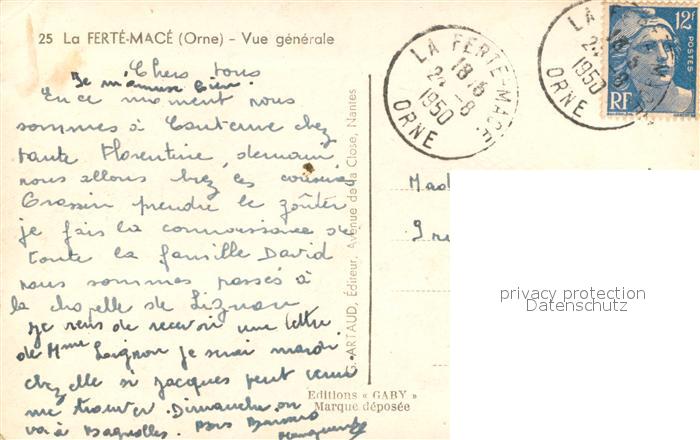 25 La FERTÉ-MACÉ (Orne) - Vue générale
Chers tous
Je m'amuse bien.
En ce moment nous
sommes à Couterne chez
tante Florentine, demain
nous allons chez les cousins
Grassin prendre le goûter
je fais la connaissance de
toute la famille David
nous sommes passés à
la chapelle de Lignou
je viens de recevoir une lettre
de Mme Loignon je serai mardi
chez elle si Jacques peut venir
me trouver. Dimanche on
va à Bagnolles. Bons Baisers
ARTAUD, Éditeur, Avenue de la Close, Nantes
Editions « GABY »
Marque déposée
LA FERTÉ-MACÉ
18 15
24 -8
1950
ORNE
LA
18 15
24 -8
1950
ORNE
12F
POSTES
RF
Mad
privacy protection
Datenschutz